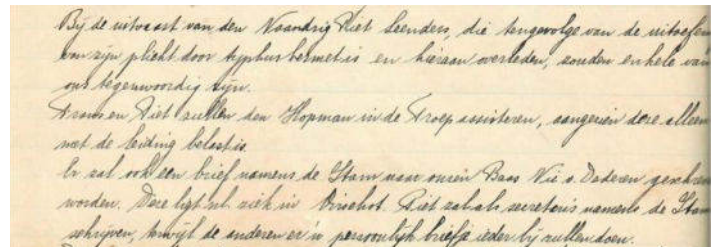 Bij de uitvaart van den Vaandrig Piet Leenders, die tengevolge van de uitoefen
van zijn plicht door typhus besmet is en hieraan overleden, zouden enkele van
ons tegenwoordig zijn.
Frans en Piet zullen den Hopman in de Troep assisteren, aangezien deze alleen
met de leiding belast is.
Er zal ook een brief namens de Stam naar onzen Baas Nic v. Dooderen geschre
worden. Deze ligt nl. ziek in Oirschot. Piet zal als secretaris namens de Stam
schrijven, terwijl de anderen er 'n persoonlijk briefje ieder bij zullen doen.